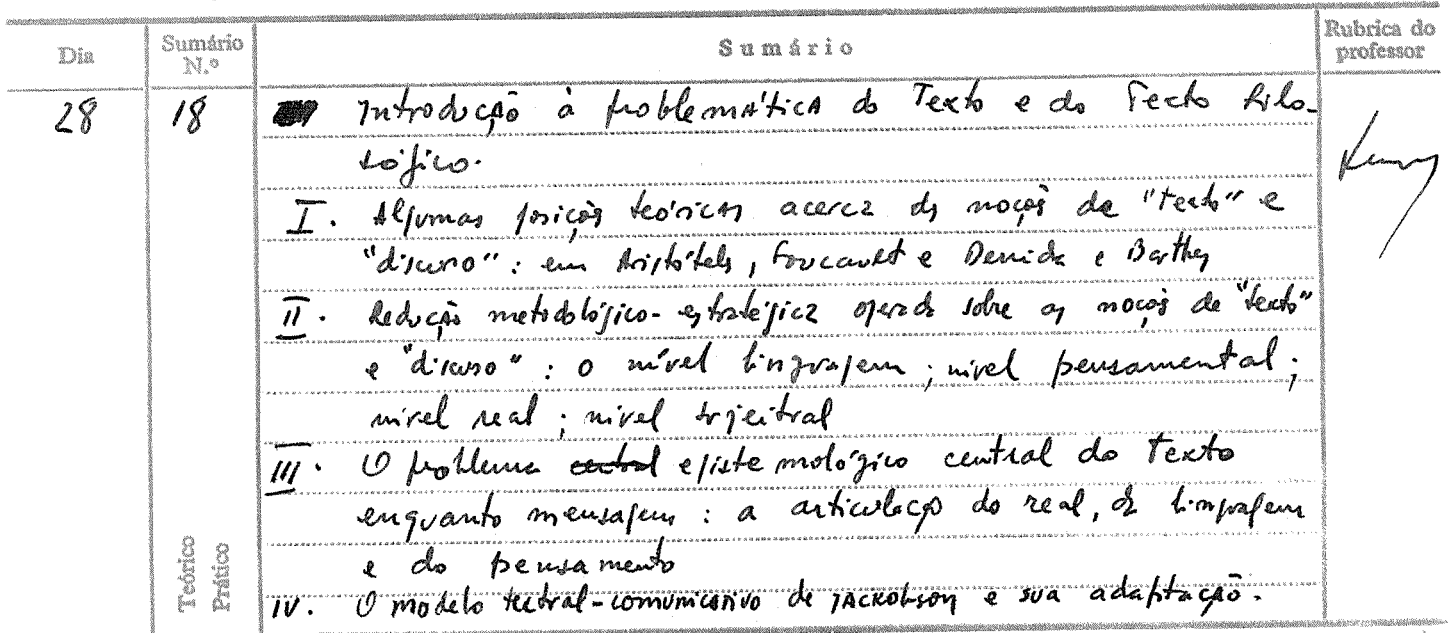 Dia Sumário N.º Sumário Rubrica do professor
28 18 Introdução à problemática do Texto e do Texto Filo-
sófico.
I. Algumas posições teóricas acerca das noções de "texto" e
"discurso": em Aristóteles, Foucault e Derrida e Barthes
II. Redução metodológico-estratégica operada sobre as noções de "texto"
e "discurso": o nível linguagem; nível pensamental;
nível real; nível sujeitral
III. O problema central epistemológico central do Texto
enquanto mensagem: a articulação do real, da linguagem
e do pensamento
IV. O modelo textral-comunicativo de JACKOBSON e sua adaptação.
Teórico
Prático